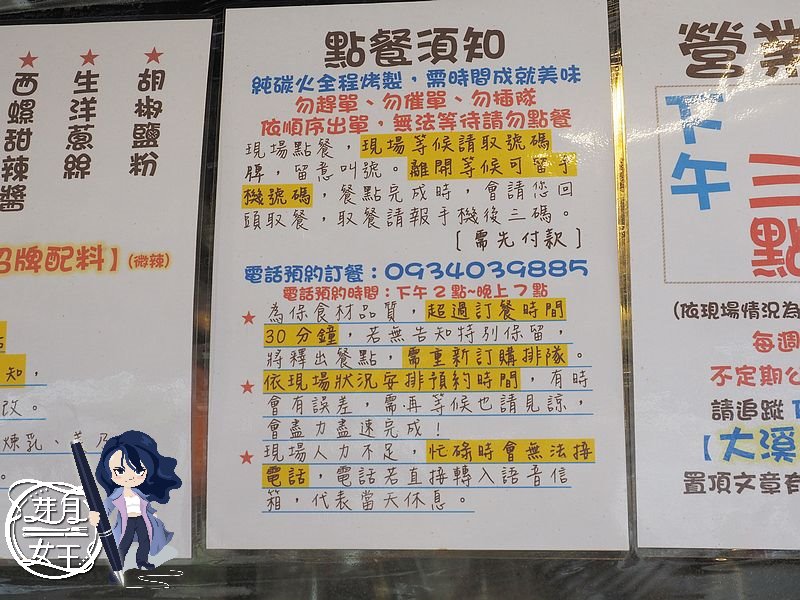 胡椒鹽粉
★
生洋蔥絲
★
西螺甜辣醬
★
招牌配料】(微辣)
知，
改。
煉乳、
點餐須知
純碳火全程烤製，需時間成就美味
勿趕單、勿催單、勿插隊
依順序出單，無法等待請勿點餐
現場點餐，現場等候請取號碼
牌，留意叫號。離開等候可留手
機號碼，餐點完成時，會請您回
頭取餐，取餐請報手機後三碼。
[需先付款]
電話預約訂餐：0934039885
電話預約時間：下午2點~晚上7點
★為保食材品質，超過訂餐時間
30分鐘，若無告知特別保留，
將釋出餐點，需重新訂購排隊。
★依現場狀況安排預約時間，有時
會有誤差，需再等候也請見諒，
會盡力盡速完成！
★現場人力不足，忙碌時會無法接
電話，電話若直接轉入語音信
箱，代表當天休息。
營業
下午
三點
(依現場情況為
每週
不定期公
請追蹤
【大溪
置頂文章有
芽月
女王